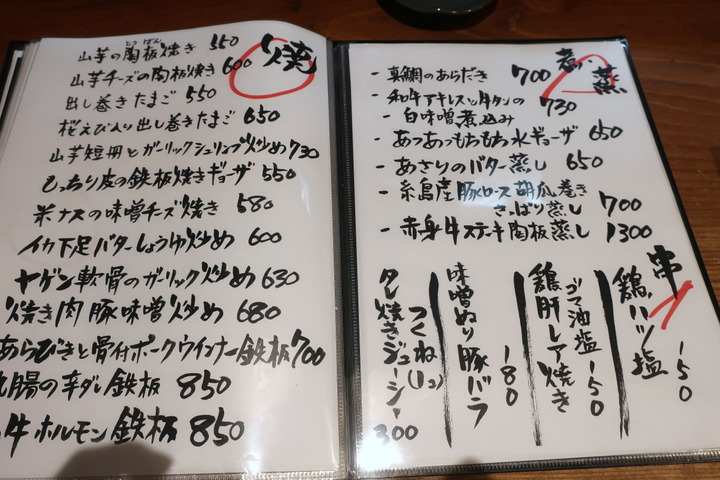 焼
山芋の陶板焼き 550
とうばん
山芋チーズの陶板焼き 600
出し巻きたまご 550
桜えび入り出し巻きたまご 650
山芋短冊とガーリックシュリンプ炒め 730
もっちり皮の鉄板焼きギョーザ 550
米ナスの味噌チーズ焼き 580
イカ下足バターしょうゆ炒め 600
ヤゲン軟骨のガーリック炒め 630
焼き肉豚味噌炒め 680
あらびきと骨付ポークウインナー鉄板 700
腸の辛ダレ鉄板 850
牛ホルモン鉄板 850
煮・蒸
- 真鯛のあらだき 700
- 和牛アキレスと牛タンの 730
- 白味噌煮込み
- あつあつもちもち水ギョーザ 650
- あさりのバター蒸し 650
- 糸島産豚ロース胡瓜巻き
さっぱり蒸し 700
- 赤身牛ステーキ陶板蒸し 1300
串
鶏ハツ塩 150
ゴマ油塩 150
鶏肝レア焼き
味噌ぬり豚バラ 180
つくね(1コ)
タレ焼きジューシー 300